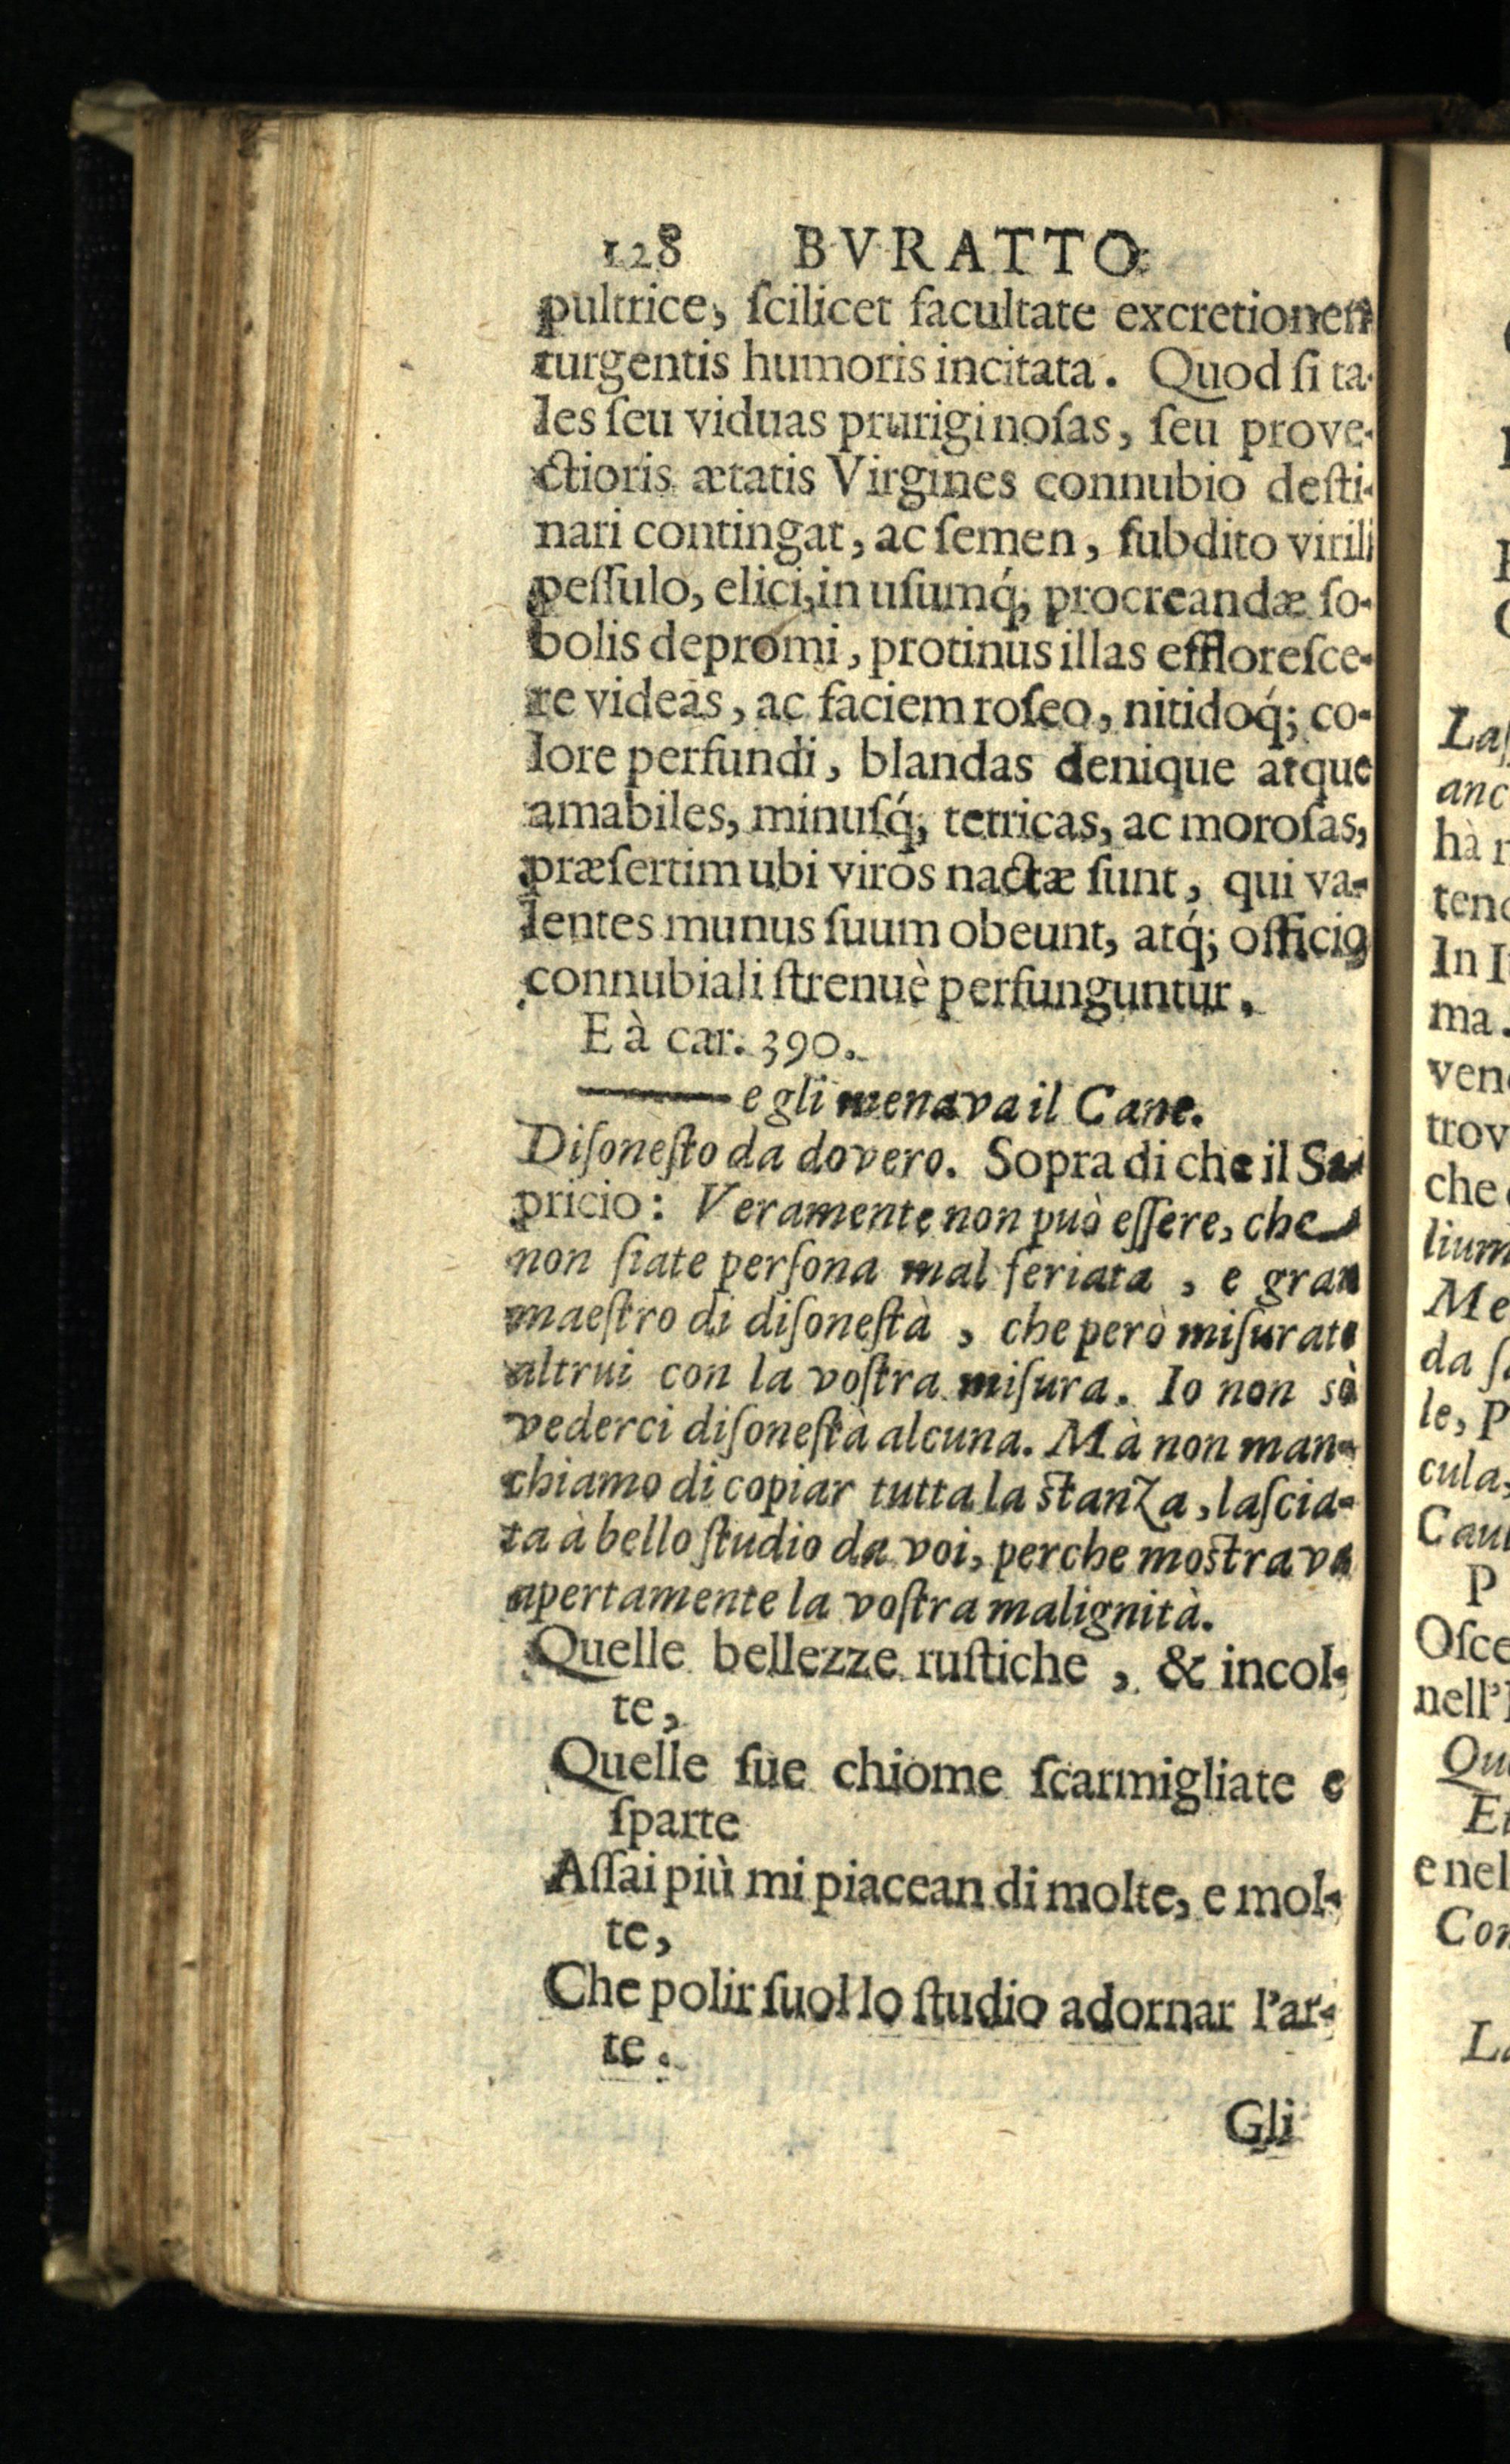 128 BVRATTO
pultrice, ſcilicet facultate excretionem
turgentis humoris incitata. Quod ſi ta-
les ſeu viduas prurigi noſas, ſeu prove-
ctioris ætatis Virgines connubio deſti-
nari contingat, ac ſemen, ſubdito virili
peſſulo, elici, in uſumq́; procreandæ ſo-
bolis depromi, protinus illas effloreſce-
re videas, ac faciem roſeo, nitidoq́; co-
lore perfundi, blandas denique atque
amabiles, minuſq́; tetricas, ac moroſas,
præſertim ubi viros nactæ ſunt, qui va-
lentes munus ſuum obeunt, atq́; officio
connubiali ſtrenuè perfunguntur.
E à car. 390.
—— e gli menava il Cane.
Diſoneſto da dovero. Sopra di che il Sa-
pricio: Veramente non può eſſere, che
non ſiate perſona mal feriata, e gran
maeſtro di diſoneſtà, che però miſurate
altrui con la voſtra miſura. Io non sò
vederci diſoneſtà alcuna. Mà non man-
chiamo di copiar tutta la ſtanza, laſcia-
ta à bello ſtudio da voi, perche moſtrava
apertamente la voſtra malignità.
Quelle bellezze ruſtiche, & incol-
te,
Quelle ſue chiome ſcarmigliate e
ſparte
Aſſai più mi piacean di molte, e mol-
te,
Che polir ſuol lo ſtudio adornar l'ar-
te.
Gli
Laſ
anc
hà
In
ma.
ven
trov
che
lium
Me
da
le,
cula,
Cau
P
Oſce
nell'
Qu
e nel
Con